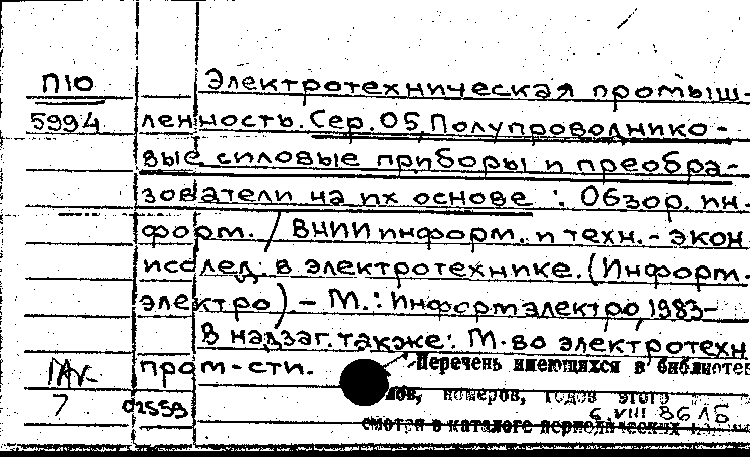 П10
5994
Электротехническая промыш-
ленность. Сер. 05, Полупроводнико-
вые силовые приборы и преобра-
зователи на их основе : Обзор. ин-
форм. / ВНИИ информ. и техн.-экон
исслед. в электротехнике. (Информ-
электро). – М. : Информэлектро, 1983–
В надзаг. также: М-во электротехн
пром-сти.
Перечень имеющихся в библиотек
номеров, годов этого
6 VIII 86 ЛБ
смотри в каталоге периодических
7
02559